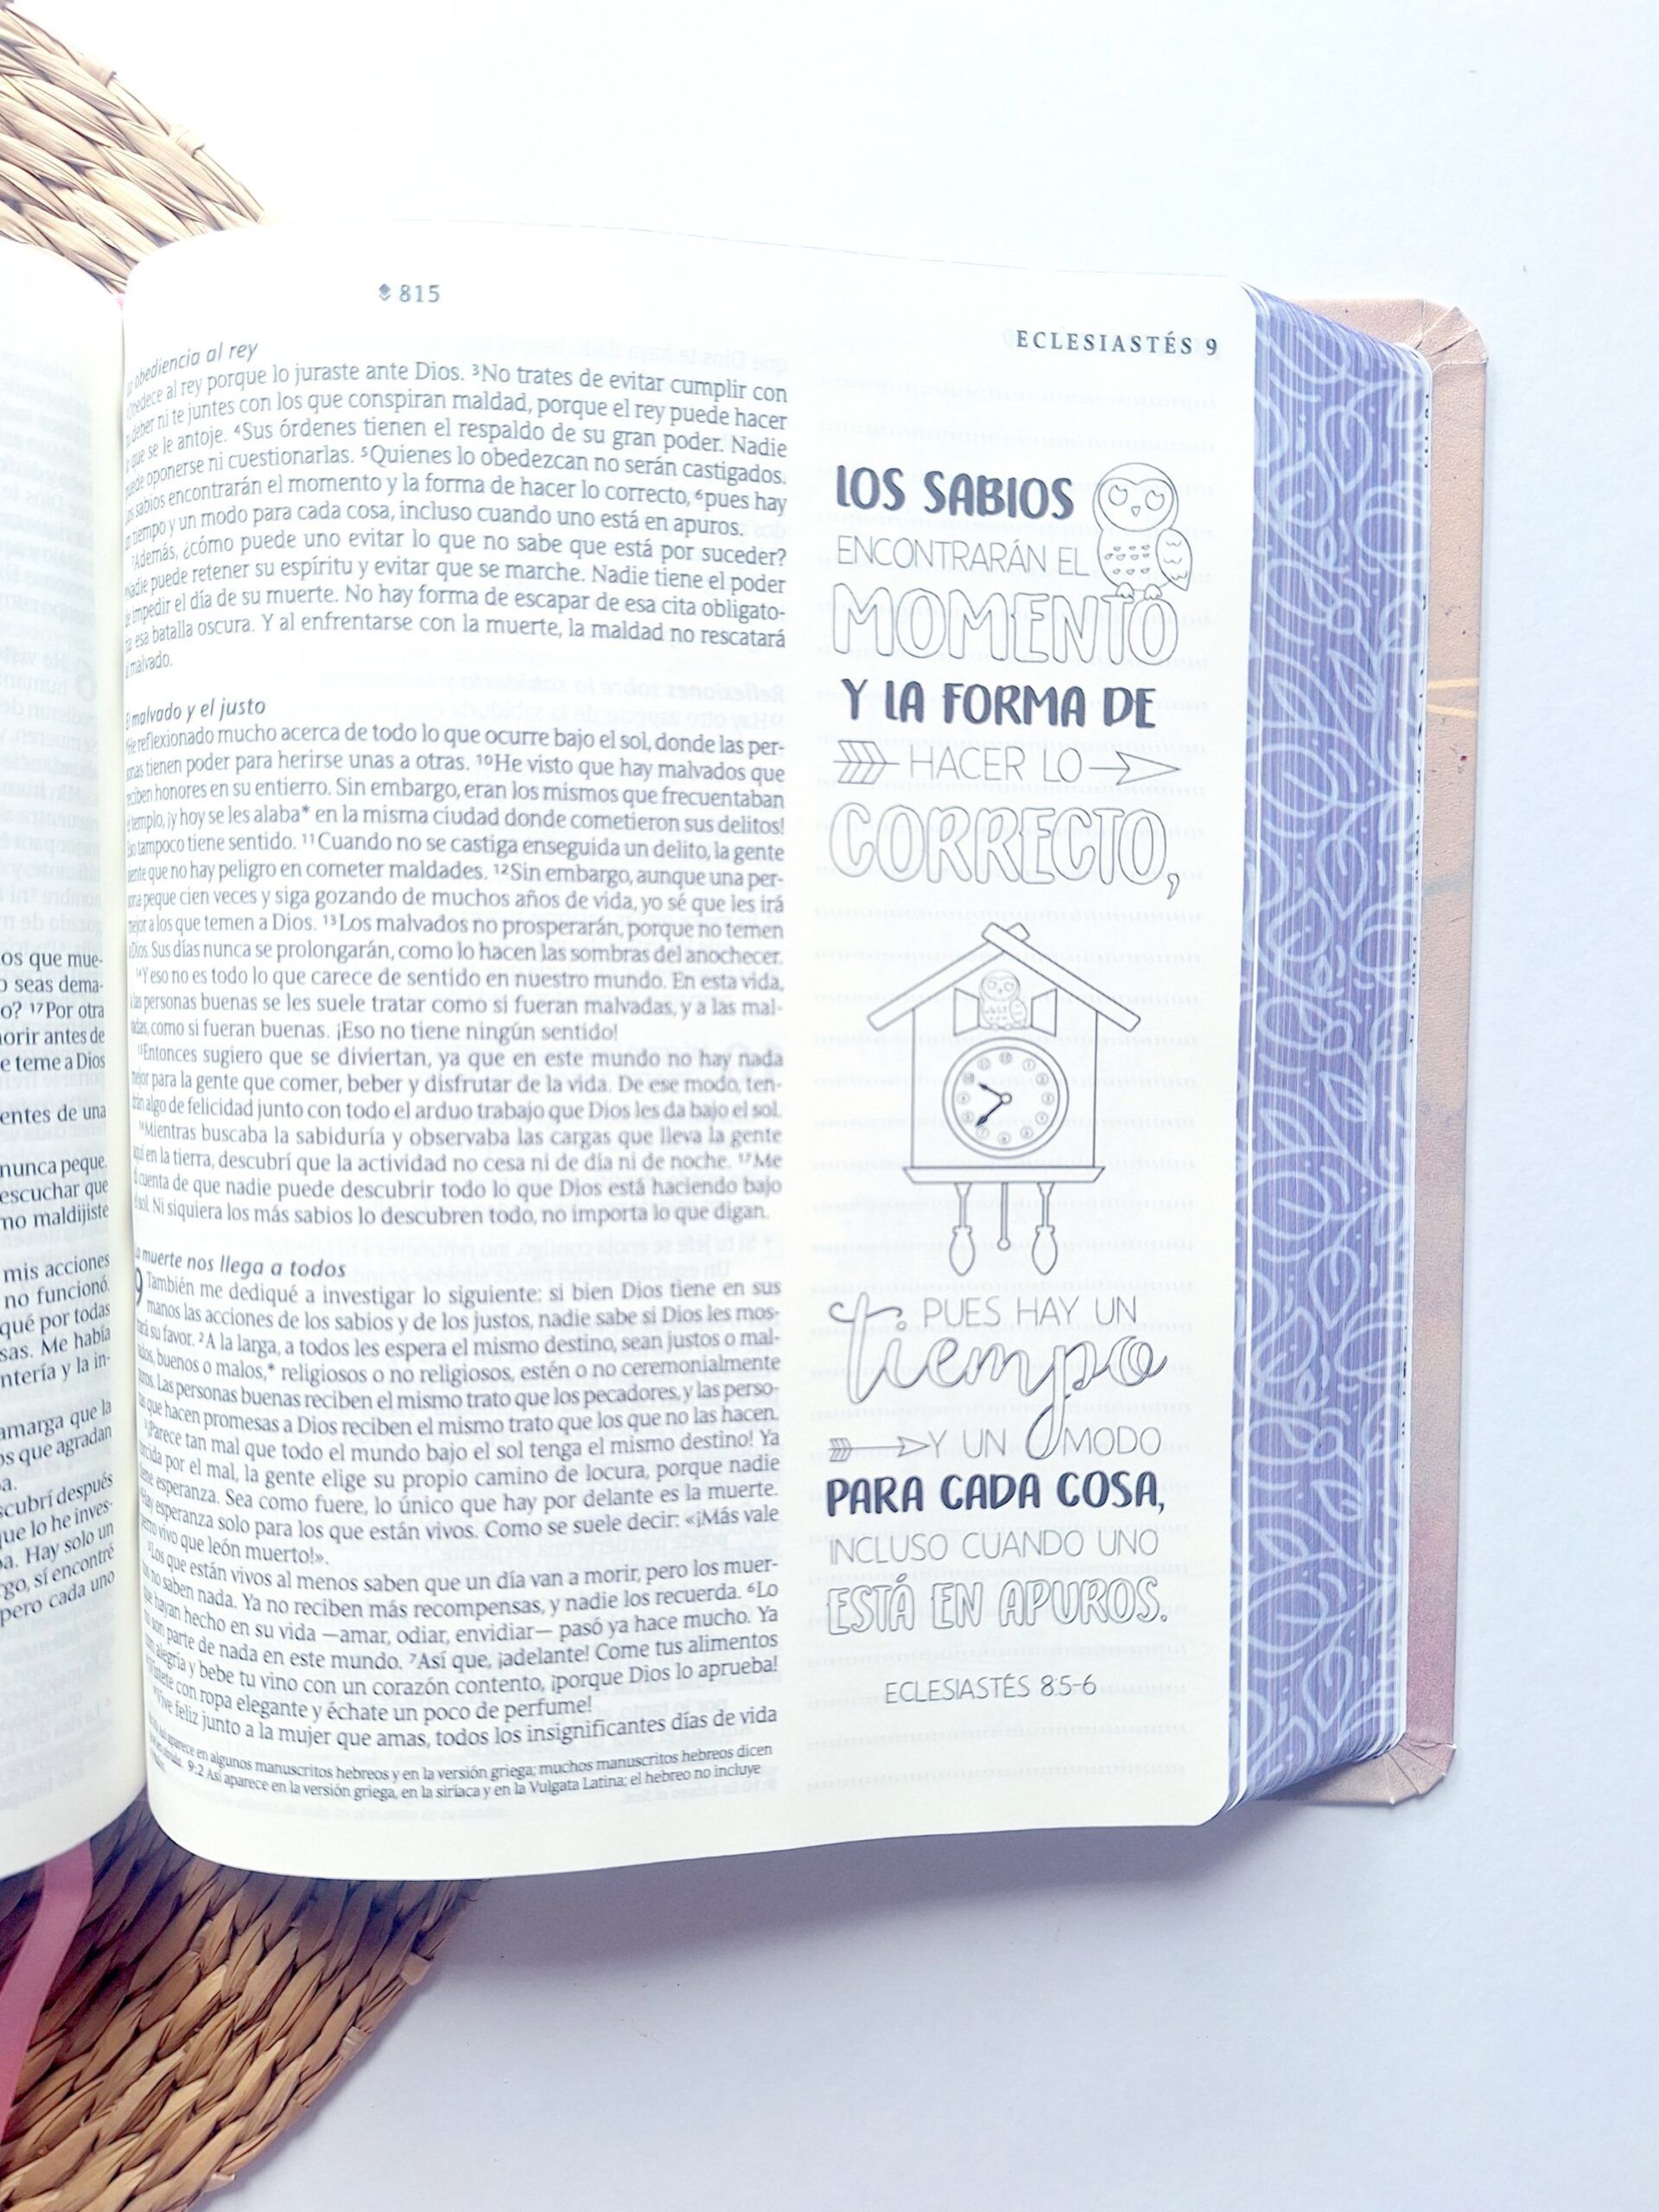 os que mue-
o seas dema-
o? ¹⁷Por otra
morir antes de
e teme a Dios
entes de una
nunca peque.
escuchar que
mo maldijiste
mis acciones
no funcionó.
qué por todas
sas. Me había
ntería y la in-
amarga que la
os que agradan
a.
scubrí después
que lo he inves-
a. Hay solo un
go, sí encontré
pero cada uno
815
ECLESIASTÉS 9
obediencia al rey
Obedece al rey porque lo juraste ante Dios. ³No trates de evitar cumplir con
deber ni te juntes con los que conspiran maldad, porque el rey puede hacer
que se le antoje. ⁴Sus órdenes tienen el respaldo de su gran poder. Nadie
puede oponerse ni cuestionarlas. ⁵Quienes lo obedezcan no serán castigados.
sabios encontrarán el momento y la forma de hacer lo correcto, ⁶pues hay
tiempo y un modo para cada cosa, incluso cuando uno está en apuros.
⁷Además, ¿cómo puede uno evitar lo que no sabe que está por suceder?
Nadie puede retener su espíritu y evitar que se marche. Nadie tiene el poder
de impedir el día de su muerte. No hay forma de escapar de esa cita obligato-
esa batalla oscura. Y al enfrentarse con la muerte, la maldad no rescatará
malvado.
malvado y el justo
He reflexionado mucho acerca de todo lo que ocurre bajo el sol, donde las per-
sonas tienen poder para herirse unas a otras. ¹⁰He visto que hay malvados que
reciben honores en su entierro. Sin embargo, eran los mismos que frecuentaban
el templo, ¡y hoy se les alaba* en la misma ciudad donde cometieron sus delitos!
Eso tampoco tiene sentido. ¹¹Cuando no se castiga enseguida un delito, la gente
siente que no hay peligro en cometer maldades. ¹²Sin embargo, aunque una per-
sona peque cien veces y siga gozando de muchos años de vida, yo sé que les irá
mejor a los que temen a Dios. ¹³Los malvados no prosperarán, porque no temen
a Dios. Sus días nunca se prolongarán, como lo hacen las sombras del anochecer.
¹⁴Y eso no es todo lo que carece de sentido en nuestro mundo. En esta vida,
a las personas buenas se les suele tratar como si fueran malvadas, y a las mal-
vadas, como si fueran buenas. ¡Eso no tiene ningún sentido!
¹⁵Entonces sugiero que se diviertan, ya que en este mundo no hay nada
mejor para la gente que comer, beber y disfrutar de la vida. De ese modo, ten-
drán algo de felicidad junto con todo el arduo trabajo que Dios les da bajo el sol.
¹⁶Mientras buscaba la sabiduría y observaba las cargas que lleva la gente
aquí en la tierra, descubrí que la actividad no cesa ni de día ni de noche. ¹⁷Me
di cuenta de que nadie puede descubrir todo lo que Dios está haciendo bajo
el sol. Ni siquiera los más sabios lo descubren todo, no importa lo que digan.
muerte nos llega a todos
9 También me dediqué a investigar lo siguiente: si bien Dios tiene en sus
manos las acciones de los sabios y de los justos, nadie sabe si Dios les mos-
trará su favor. ²A la larga, a todos les espera el mismo destino, sean justos o mal-
vados, buenos o malos,* religiosos o no religiosos, estén o no ceremonialmente
puros. Las personas buenas reciben el mismo trato que los pecadores, y las perso-
nas que hacen promesas a Dios reciben el mismo trato que los que no las hacen.
³¡Parece tan mal que todo el mundo bajo el sol tenga el mismo destino! Ya
torcida por el mal, la gente elige su propio camino de locura, porque nadie
tiene esperanza. Sea como fuere, lo único que hay por delante es la muerte.
Hay esperanza solo para los que están vivos. Como se suele decir: «¡Más vale
perro vivo que león muerto!».
⁵Los que están vivos al menos saben que un día van a morir, pero los muer-
tos no saben nada. Ya no reciben más recompensas, y nadie los recuerda. ⁶Lo
que hayan hecho en su vida —amar, odiar, envidiar— pasó ya hace mucho. Ya
no son parte de nada en este mundo. ⁷Así que, ¡adelante! Come tus alimentos
con alegría y bebe tu vino con un corazón contento, ¡porque Dios lo aprueba!
Vístete con ropa elegante y échate un poco de perfume!
⁹Vive feliz junto a la mujer que amas, todos los insignificantes días de vida
aparece en algunos manuscritos hebreos y en la versión griega; muchos manuscritos hebreos dicen
9:2 Así aparece en la versión griega, en la siríaca y en la Vulgata Latina; el hebreo no incluye
LOS SABIOS
ENCONTRARÁN EL
MOMENTO
Y LA FORMA DE
HACER LO
CORRECTO,
PUES HAY UN
tiempo
Y UN MODO
PARA CADA COSA,
INCLUSO CUANDO UNO
ESTÁ EN APUROS.
ECLESIASTÉS 8:5-6